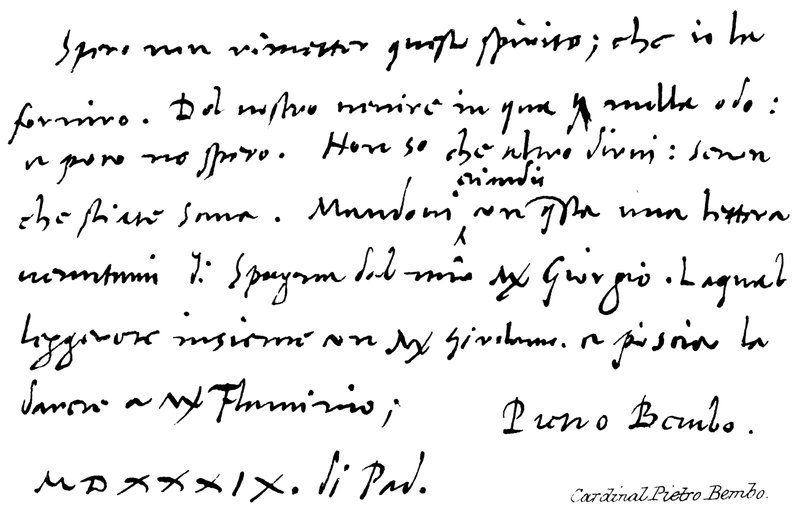 Spero non rimetter questo spirito; che io la
forniro. Del vostro venire in qua nulla odo:
e poco no spero. Non so che altro dirvi: senon
che stiate sana. Mandovi etiandio con qsta una lettera
venutami di Spagna dal mio Mr Giorgio. Laqual
leggerete insieme con Mr Girolamo. e poscia la
darete a Mr Flaminio;
Pietro Bembo.
MDXXXIX. di Pad.
Cardinal Pietro Bembo.